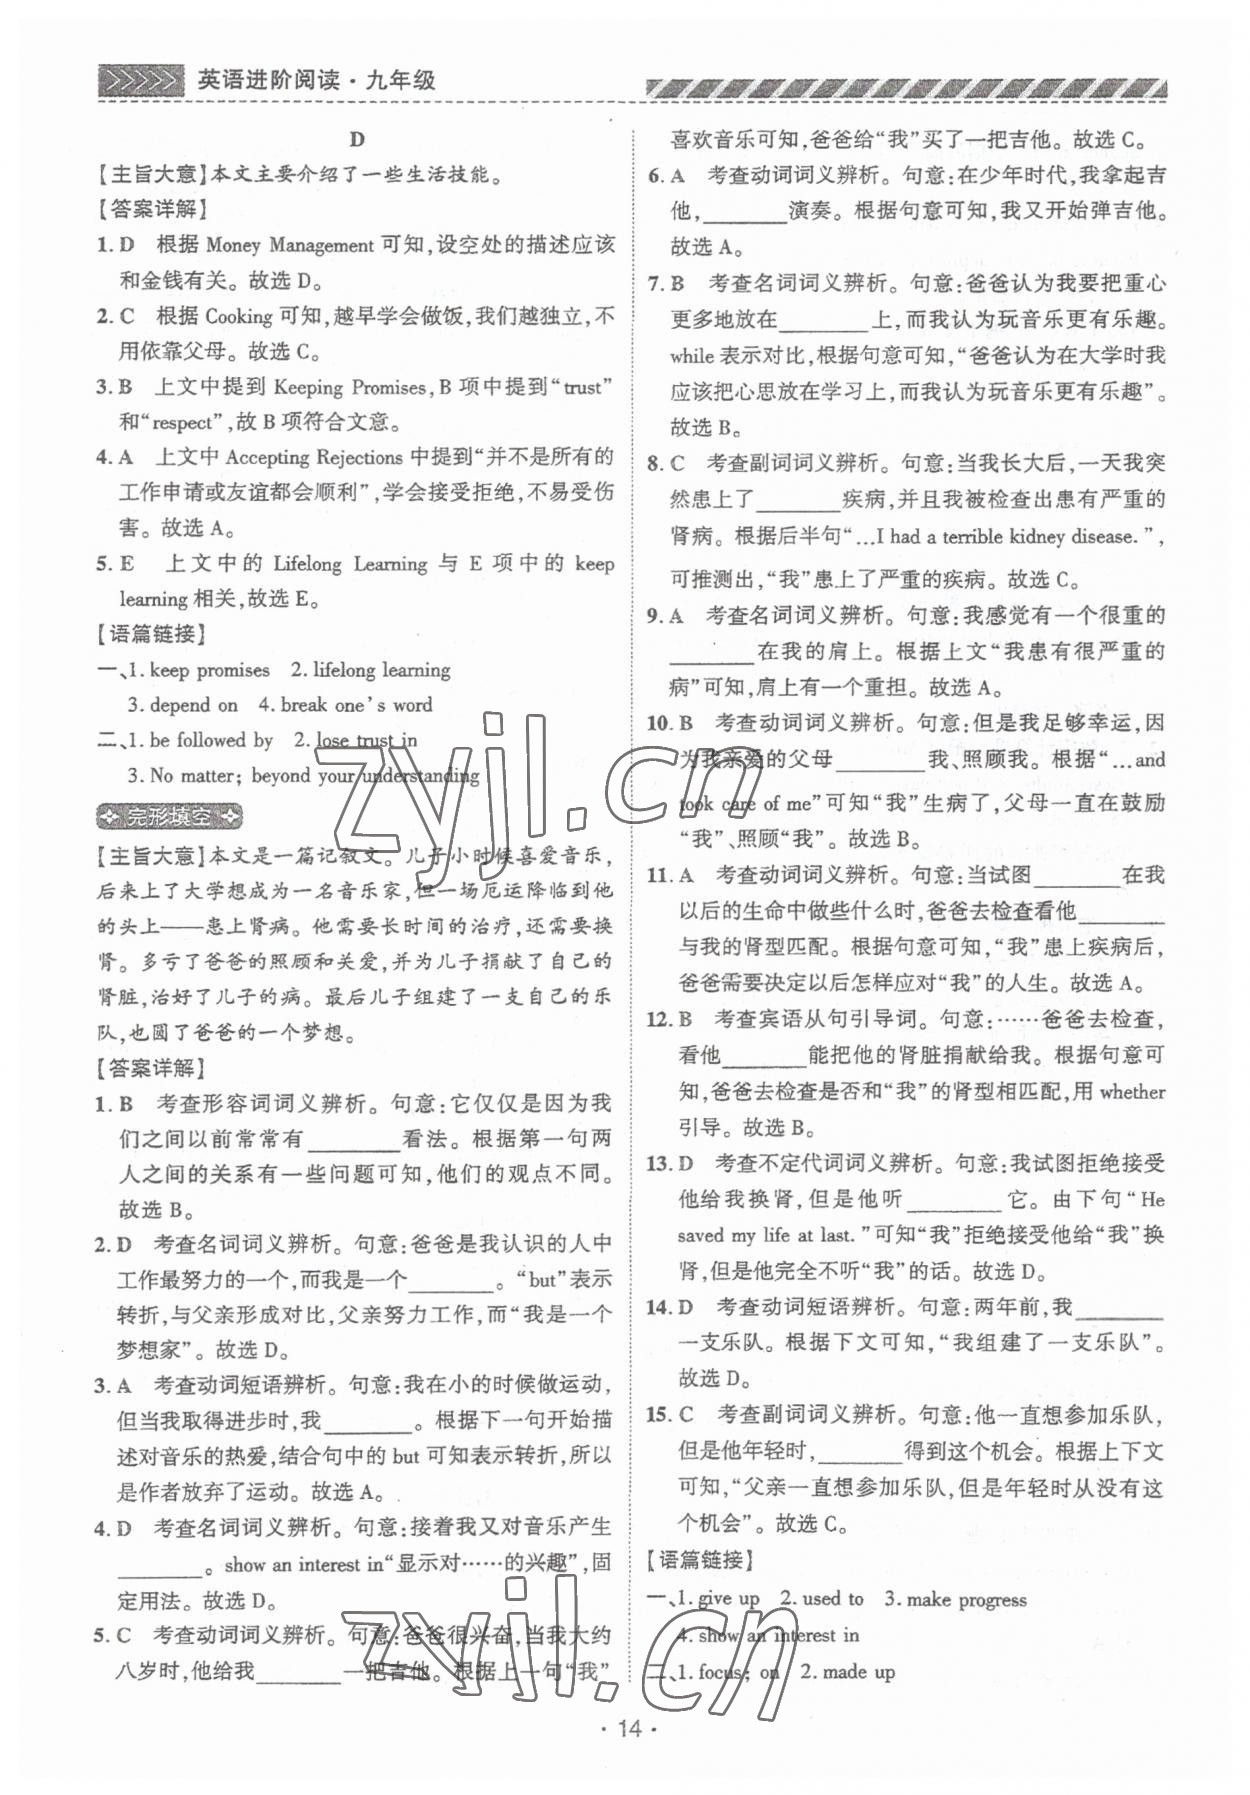 英语进阶阅读·九年级
D
【主旨大意】本文主要介绍了一些生活技能。
【答案详解】
1. D 根据 Money Management 可知,设空处的描述应该
和金钱有关。故选 D。
2. C 根据 Cooking 可知,越早学会做饭,我们越独立,不
用依靠父母。故选 C。
3. B 上文中提到 Keeping Promises,B 项中提到“trust”
和“respect”,故 B 项符合文意。
4. A 上文中 Accepting Rejections 中提到“并不是所有的
工作申请或友谊都会顺利”,学会接受拒绝,不易受伤
害。故选 A。
5. E 上文中的 Lifelong Learning 与 E 项中的 keep
learning 相关,故选 E。
【语篇链接】
一、1. keep promises 2. lifelong learning
3. depend on 4. break one's word
二、1. be followed by 2. lose trust in
3. No matter; beyond your understanding
完形填空
【主旨大意】本文是一篇记叙文。儿子小时候喜爱音乐,
后来上了大学想成为一名音乐家,但一场厄运降临到他
的头上——患上肾病。他需要长时间的治疗,还需要换
肾。多亏了爸爸的照顾和关爱,并为儿子捐献了自己的
肾脏,治好了儿子的病。最后儿子组建了一支自己的乐
队,也圆了爸爸的一个梦想。
【答案详解】
1. B 考查形容词词义辨析。句意:它仅仅是因为我
们之间以前常常有________看法。根据第一句两
人之间的关系有一些问题可知,他们的观点不同。
故选 B。
2. D 考查名词词义辨析。句意:爸爸是我认识的人中
工作最努力的一个,而我是一个________。“but”表示
转折,与父亲形成对比,父亲努力工作,而“我是一个
梦想家”。故选 D。
3. A 考查动词短语辨析。句意:我在小的时候做运动,
但当我取得进步时,我________。根据下一句开始描
述对音乐的热爱,结合句中的 but 可知表示转折,所以
是作者放弃了运动。故选 A。
4. D 考查名词词义辨析。句意:接着我又对音乐产生
________。show an interest in“显示对……的兴趣”,固
定用法。故选 D。
5. C 考查动词词义辨析。句意:爸爸很兴奋,当我大约
八岁时,他给我________一把吉他。根据上一句“我”
喜欢音乐可知,爸爸给“我”买了一把吉他。故选 C。
6. A 考查动词词义辨析。句意:在少年时代,我拿起吉
他,________演奏。根据句意可知,我又开始弹吉他。
故选 A。
7. B 考查名词词义辨析。句意:爸爸认为我要把重心
更多地放在________上,而我认为玩音乐更有乐趣。
while 表示对比,根据句意可知,“爸爸认为在大学时我
应该把心思放在学习上,而我认为玩音乐更有乐趣”。
故选 B。
8. C 考查副词词义辨析。句意:当我长大后,一天我突
然患上了________疾病,并且我被检查出患有严重的
肾病。根据后半句“...I had a terrible kidney disease.”,
可推测出,“我”患上了严重的疾病。故选 C。
9. A 考查名词词义辨析。句意:我感觉有一个很重的
________在我的肩上。根据上文“我患有很严重的
病”可知,肩上有一个重担。故选 A。
10. B 考查动词词义辨析。句意:但是我足够幸运,因
为我亲爱的父母________我、照顾我。根据“...and
took care of me”可知“我”生病了,父母一直在鼓励
“我”、照顾“我”。故选 B。
11. A 考查动词词义辨析。句意:当试图________在我
以后的生命中做些什么时,爸爸去检查看他________
与我的肾型匹配。根据句意可知,“我”患上疾病后,
爸爸需要决定以后怎样应对“我”的人生。故选 A。
12. B 考查宾语从句引导词。句意:……爸爸去检查,
看他________能把他的肾脏捐献给我。根据句意可
知,爸爸去检查是否和“我”的肾型相匹配,用 whether
引导。故选 B。
13. D 考查不定代词词义辨析。句意:我试图拒绝接受
他给我换肾,但是他听________它。由下句“He
saved my life at last.”可知“我”拒绝接受他给“我”换
肾,但是他完全不听“我”的话。故选 D。
14. D 考查动词短语辨析。句意:两年前,我________
一支乐队。根据下文可知,“我组建了一支乐队”。
故选 D。
15. C 考查副词词义辨析。句意:他一直想参加乐队,
但是他年轻时,________得到这个机会。根据上下文
可知,“父亲一直想参加乐队,但是年轻时从没有这
个机会”。故选 C。
【语篇链接】
一、1. give up 2. used to 3. make progress
4. show an interest in
二、1. focus; on 2. made up
·14·
zyjl.cn
zyjl.cn